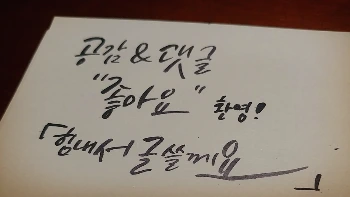 공감 & 댓글
"좋아요" 환영!
「힘내서 글쓸께요」